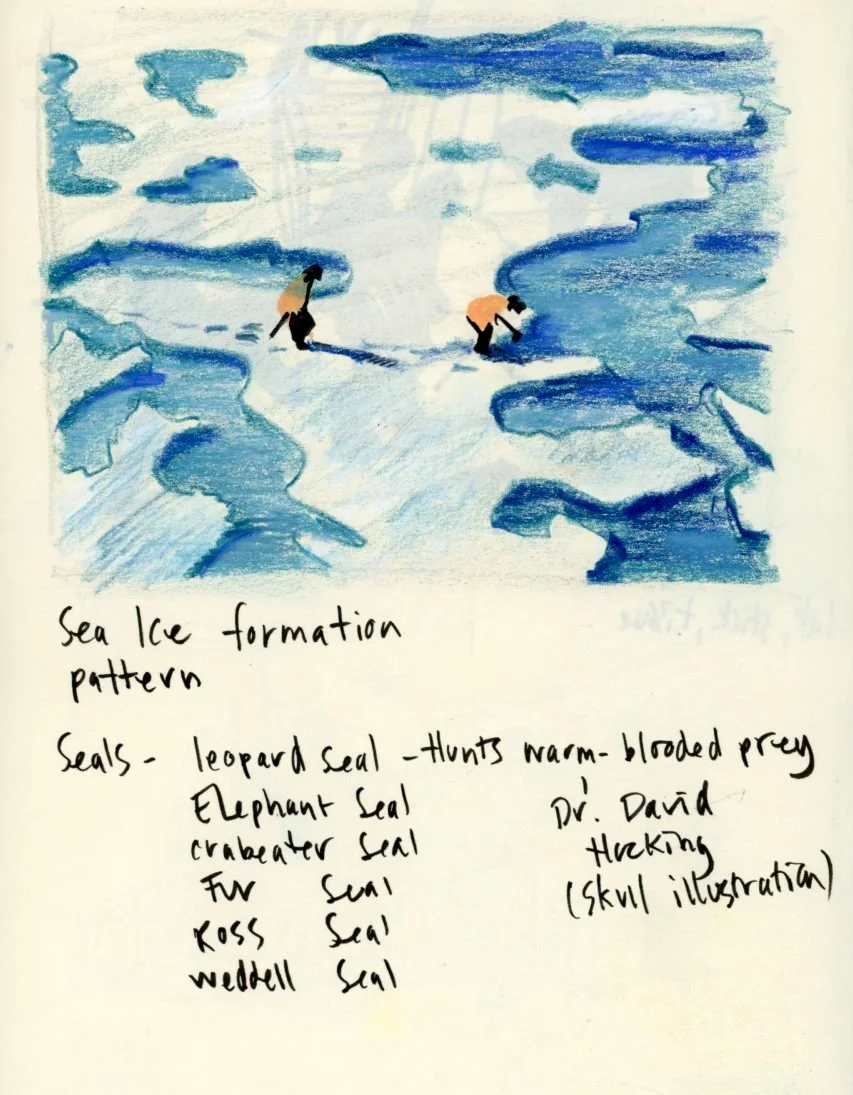 Sea Ice formation
pattern
Seals - leopard Seal - Hunts warm-blooded prey
Elephant Seal
crabeater Seal
Fur Seal
Ross Seal
weddell Seal
Dr. David
Hocking
(Skull illustration)